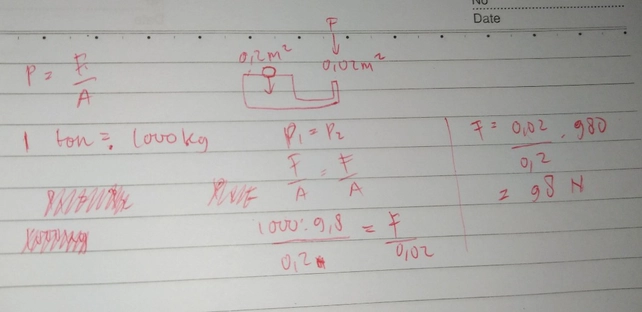 No
Date
F
0,2 m²
0,02 m²
P = F/A
1 ton = 1000 kg
P₁ = P₂
F/A = F/A
1000 . 9,8 / 0,2 = F / 0,02
F = 0,02 / 0,2 . 980
= 98 N